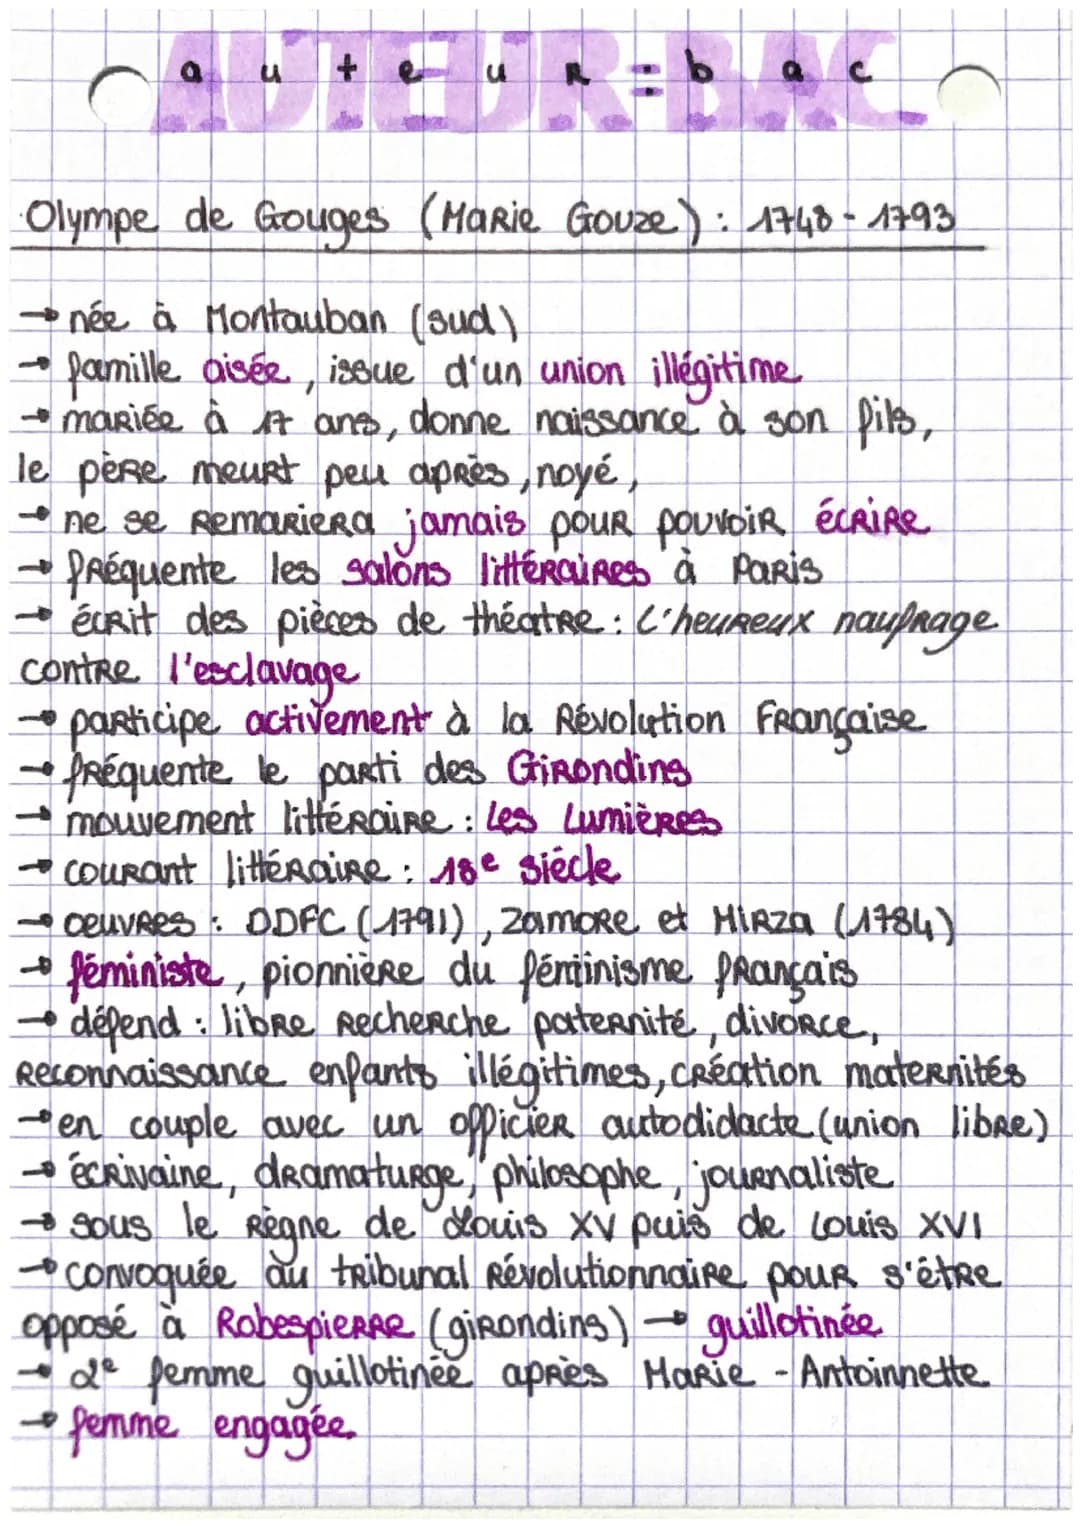 AUTEUR:BAC
auteur:bac
Olympe de Gouges (Marie Gouze) : 1748 - 1793
→ née à Montauban (sud)
→ famille aisée, issue d'un union illégitime
→ mariée à 17 ans, donne naissance à son fils,
le père meurt peu après, noyé,
→ ne se remariera jamais pour pouvoir écrire
→ fréquente les salons littéraires à Paris
→ écrit des pièces de théatre : L'heureux naufrage
contre l'esclavage
→ participe activement à la Révolution Française
→ fréquente le parti des Girondins
→ mouvement littéraire : Les Lumières
→ courant littéraire : 18e siécle
→ oeuvres : DDFC (1791), Zamore et Mirza (1784)
→ féministe, pionnière du féminisme français
→ défend : libre recherche paternité, divorce,
reconnaissance enfants illégitimes, création maternités
→ en couple avec un officier autodidacte (union libre)
→ écrivaine, dramaturge, philosophe, journaliste
→ sous le règne de Louis XV puis de Louis XVI
→ convoquée au tribunal révolutionnaire pour s'être
opposé à Robespierre (girondins) → guillotinée
→ 2e femme guillotinée après Marie - Antoinnette
→ femme engagée.